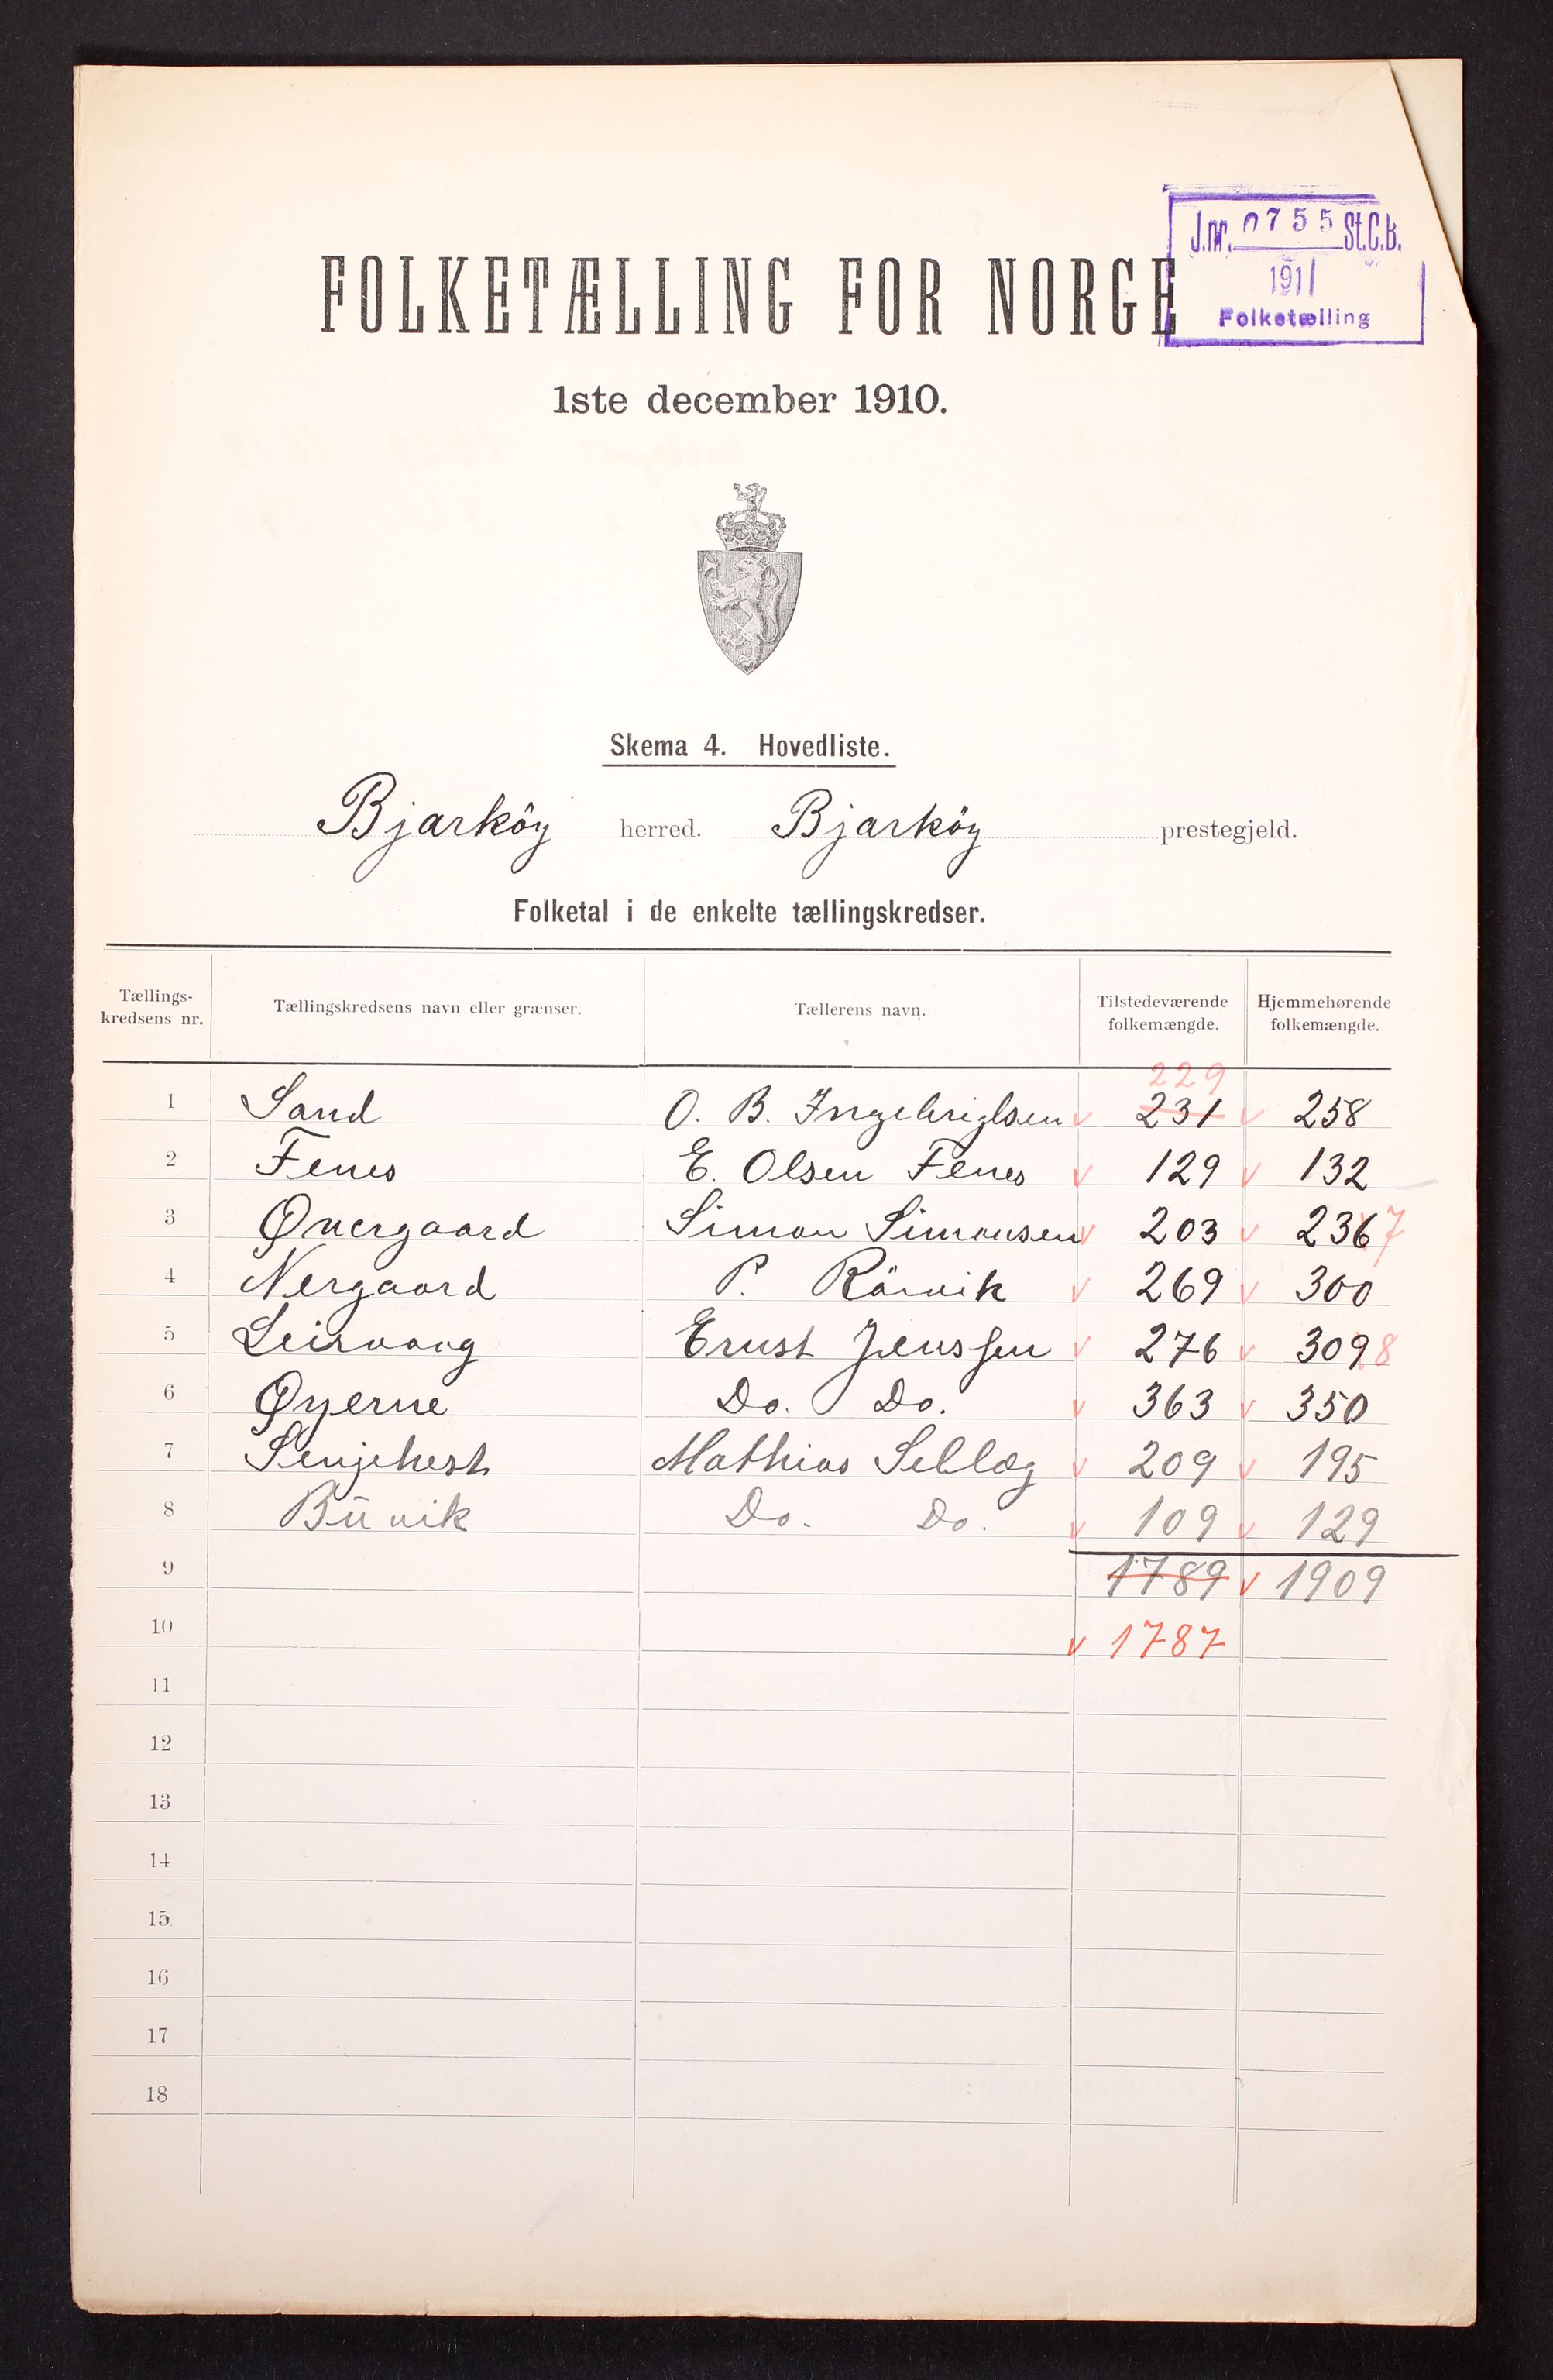 J.nr. 0755 St.C.B.
1911
Folketælling
FOLKETÆLLING FOR NORGE
1ste december 1910.
Skema 4. Hovedliste.
Bjarköy herred. Bjarköy prestegjeld.
Folketal i de enkelte tællingskredser.
Tællings-kredsens nr. Tællingskredsens navn eller grænser. Tællerens navn. Tilstedeværende folkemængde. Hjemmehørende folkemængde.
229
1 Sand O. B. Ingebrigtsen v 231 v 258
2 Fenes E. Olsen Fenes v 129 v 132
3 Övergaard Simon Simonsen v 203 v 236 7
4 Nergaard P. Rörvik v 269 v 300
5 Leirvaag Ernst Jenssen v 276 v 309 8
6 Øyerne Do. Do. v 363 v 350
7 Senjehest Mathias Sellæg v 209 v 195
8 Büvik Do. Do. v 109 v 129
9 1789 v 1909
10 v 1787
11
12
13
14
15
16
17
18